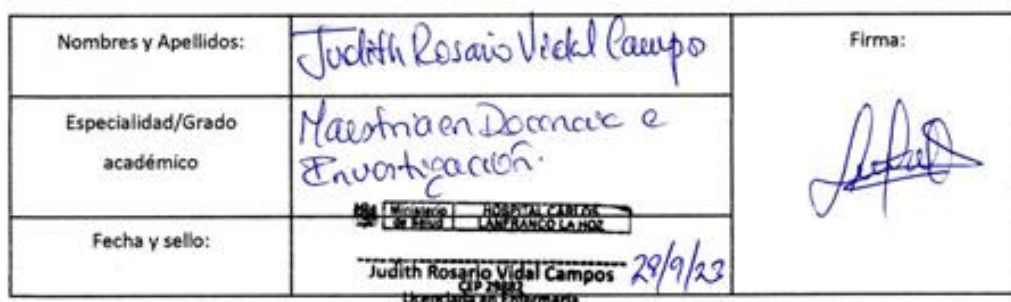 Nombres y Apellidos:
Judith Rosario Vidal Campo
Firma:
Especialidad/Grado
académico
Maestria en Docencia e
Investigación.
Ministerio
de Salud
HOSPITAL CARLOS
LANFRANCO LA HOZ
Fecha y sello:
Judith Rosario Vidal Campos
29/9/23
CEP 29882
Licenciada en Enfermería